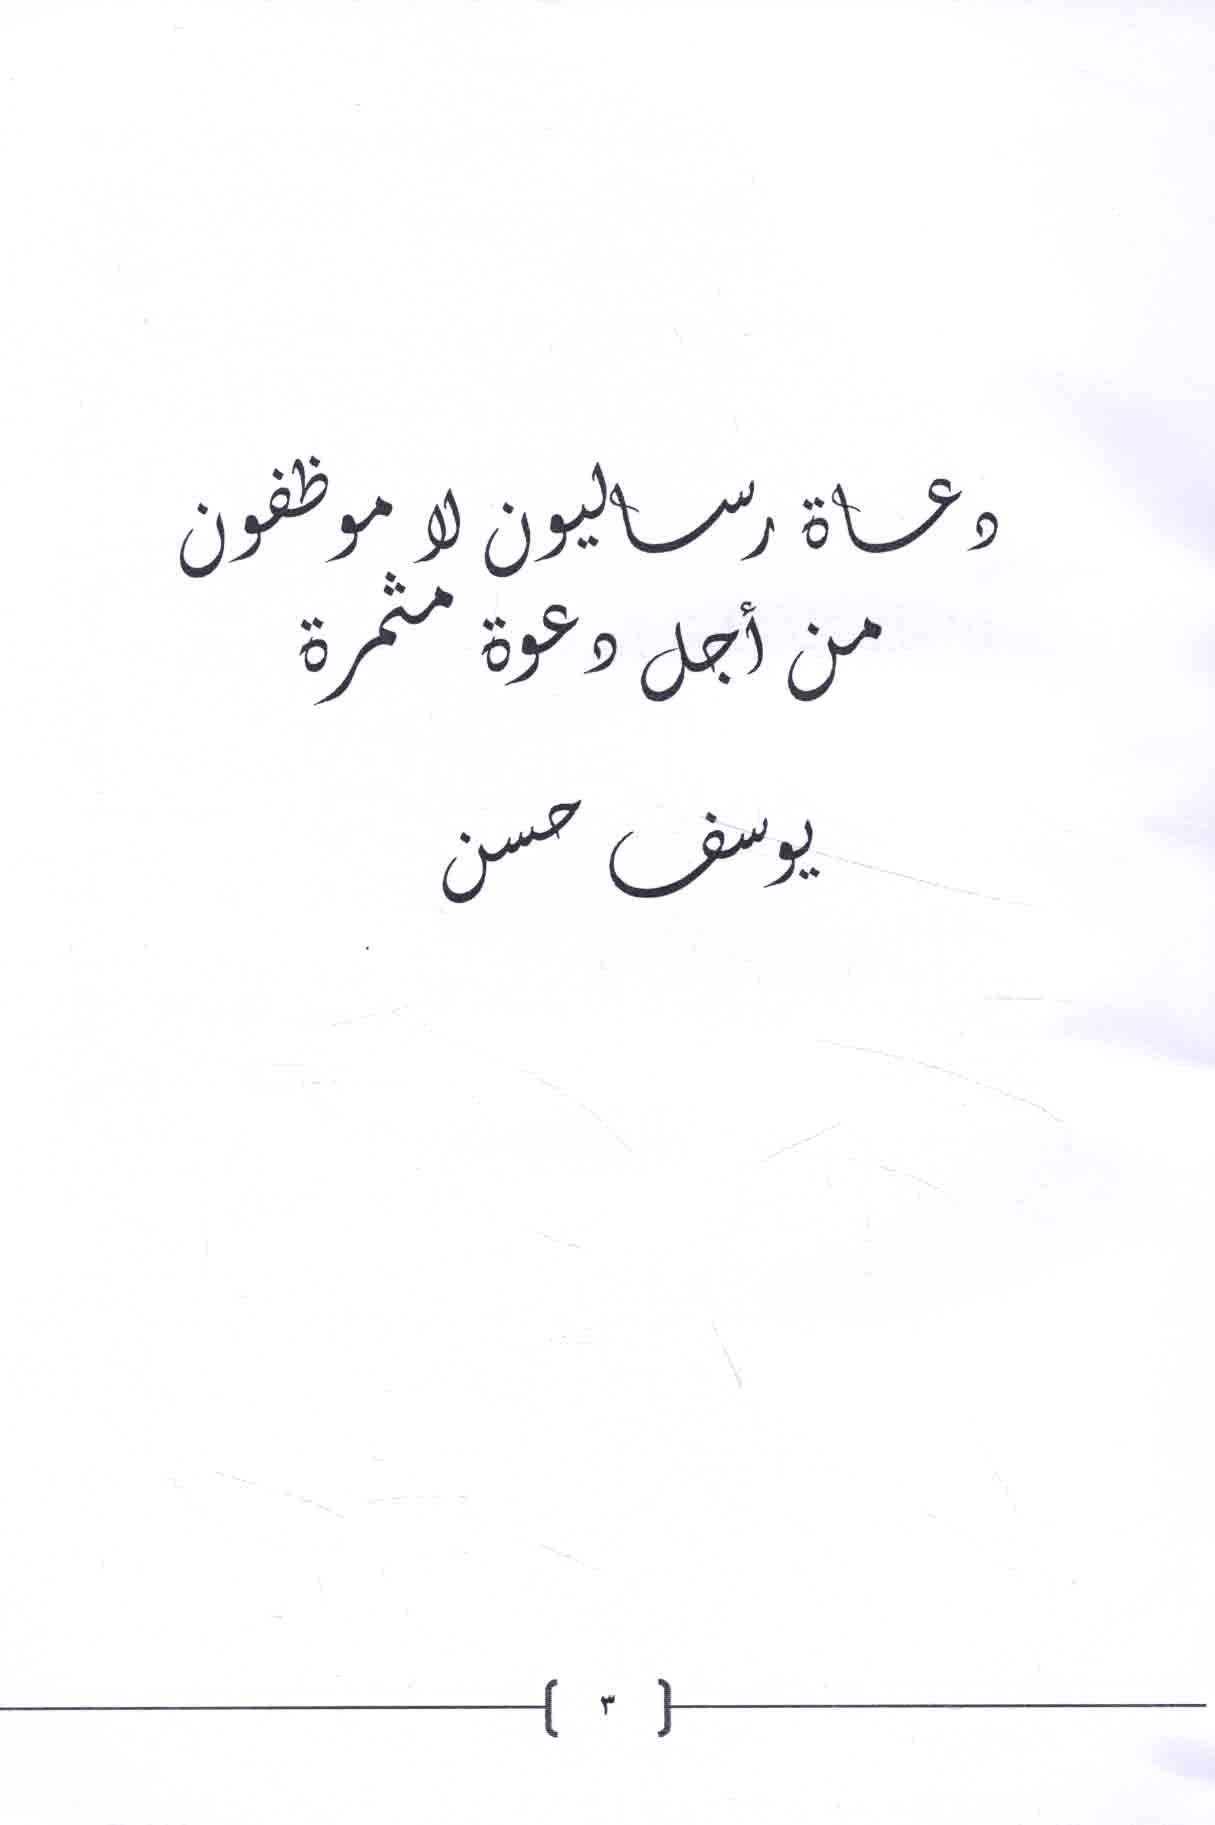 دعاة رساليون لا موظفون
من أجل دعوة مثمرة
يوسف حسن
٣